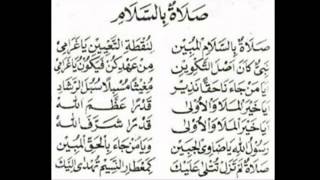 صَلَاةٌ بِالسَّلَامِ
صَلَاةٌ بِالسَّلَامِ الْمُبِيْنِ لِنُقْطَةِ التَّعْيِيْنِ يَا غَرَامِيْ
نَبِيٌّ كَانَ اَصْلَ التَّكْوِيْنِ مِنْ عَهْدِ كُنْ فَيَكُوْنُ يَا غَرَامِيْ
اَيَا مَنْ جَاءَنَا حَقًّا نَذِيْرِ مُغِيْثًا مُسْبِلًا سُبُلَ الرَّشَادِ
اَيَا خَيْرَ الْمَلَا وَالْاُوْلٰى قَدْرًا عَظَّمَ اللهُ
اَيَا خَيْرَ الْمَلَا وَالْاُوْلٰى قَدْرًا شَرَّفَ اللهُ
رَسُوْلَ اللهِ يَا ضَاوِى الْجَبِيْنِ وَيَا مَنْ جَاءَ بِالْحَقِّ الْمُبِيْنِ
صَلَاةٌ لَمْ تَزَلْ تُتْلٰى عَلَيْكَ كَمِعْطَارِ النَّسِيْمِ تُهْدٰى اِلَيْكَ